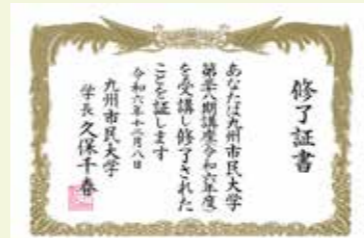 修了証書
あなたは九州市民大学
第五十八期講座(令和六年度)
を受講し修了された
ことを証します
令和六年十二月八日
九州市民大学
学長 久保千春